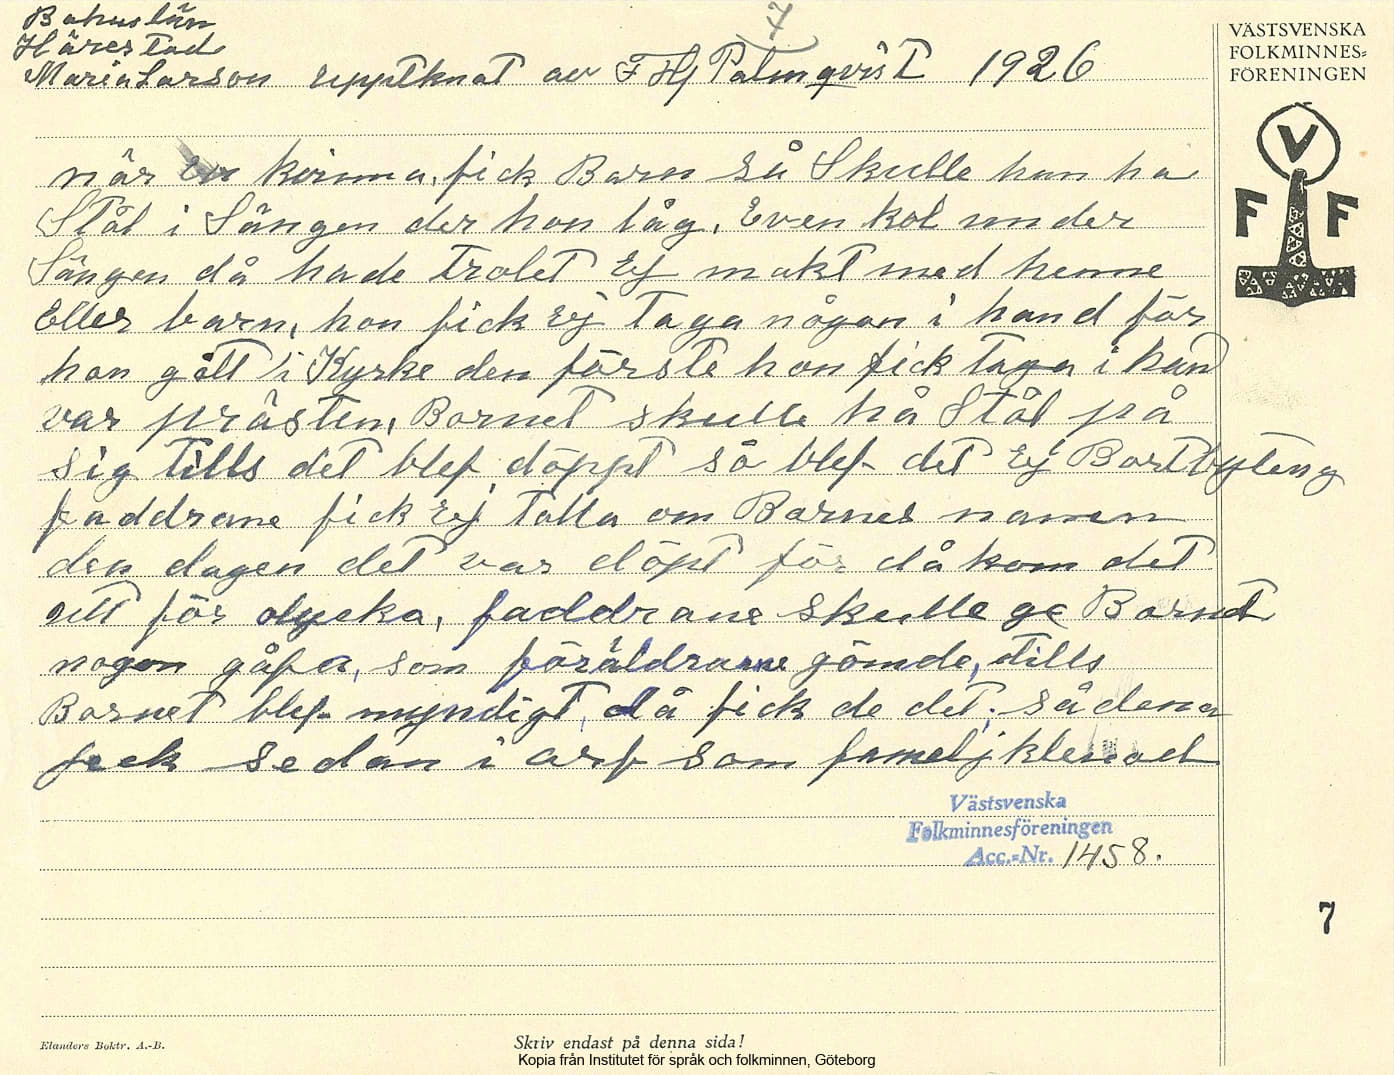 7
Bohuslän
Härestad
Maria Larson upptknat av F Hj Palmqvist 1926
VÄSTSVENSKA
FOLKMINNES=
FÖRENINGEN
V
F F
när en kvinna, fick Barn så Skulle hun ha
Stål i Sängen der hon låg, Even kol under
Sängen då hade trolet Ej makt med henne
Eller barn, hon fick Ej taga någon i hand för
hon gått i Kyrke den förste hon fick taga i han
var prästen, Barnet skulle hå Stål på
sig tills det blef döppt så blef det Ej Bortbyteng
faddrane fick Ej talla om Barnes namn
den dagen det var döpt för då kom det
utt för olycka, faddrane skulle ge Barnet
nogon gåfva, som föräldrarne gömde, tills
Barnet blef myndigt, då fick de det, sådena
feck sedan i arf som familjklenod
Västsvenska
Folkminnesföreningen
Acc.=Nr. 1458.
7
Elanders Boktr. A.-B.
Skriv endast på denna sida!
Kopia från Institutet för språk och folkminnen, Göteborg